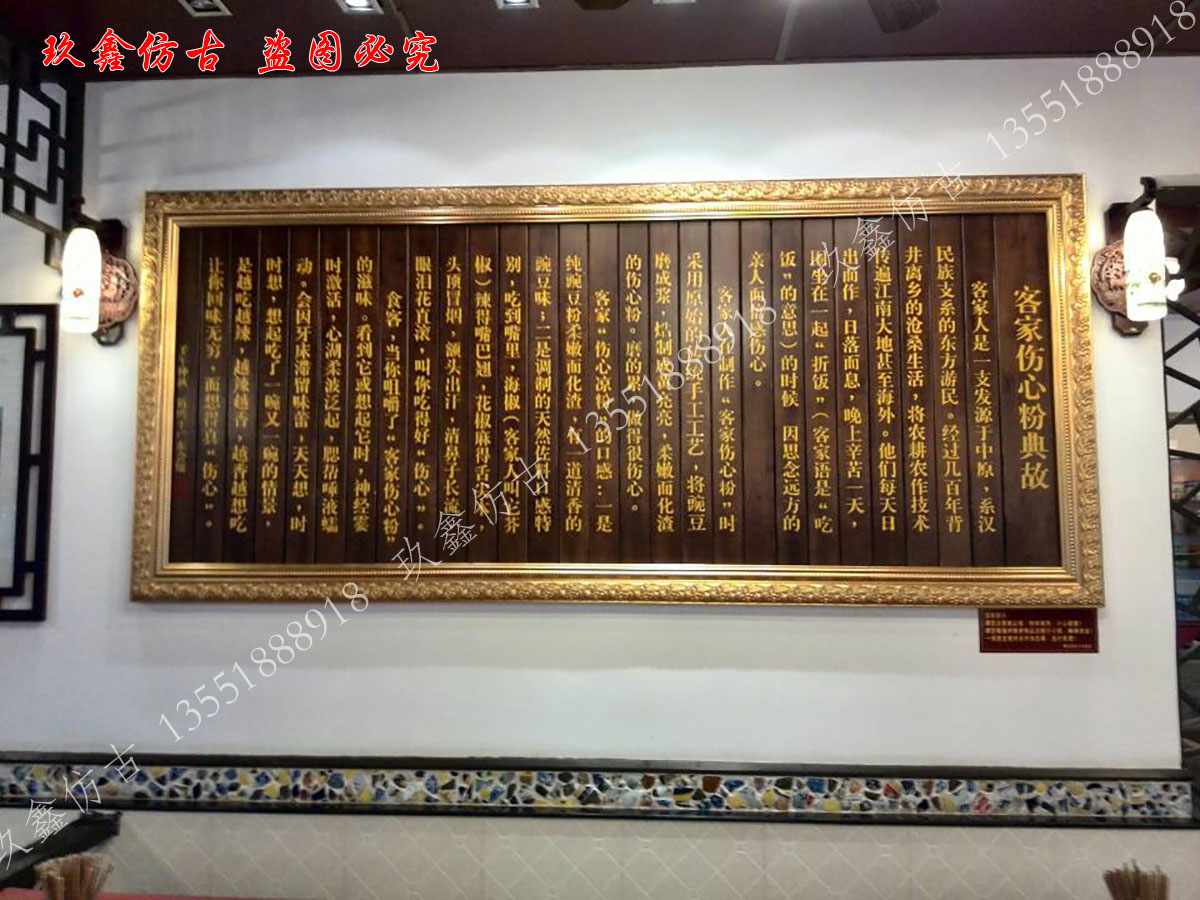 玖鑫仿古 盗图必究
客家伤心粉典故
客家人是一支发源于中原，系汉
民族支系的东方游民。经过几百年背
井离乡的沧桑生活，将农耕农作技术
传遍江南大地甚至海外。他们每天日
出而作，日落而息，晚上辛苦一天，
围坐在一起“折饭”（客家语是“吃
饭”的意思）的时候 因思念远方的
亲人而 伤心。
客家 制作“客家伤心粉”时
采用原始的 手工工艺，将豌豆
磨成浆，焙制 亮，柔嫩面化渣
的伤心粉。磨的累，做得很伤心。
客家“伤心凉粉”的口感：一是
纯豌豆粉柔嫩面化渣，有一道清香的
豌豆味；二是调制的天然佐料 感特
别，吃到嘴里，海椒（客家人叫
椒）辣得嘴巴翘，花椒麻得舌
头顶冒烟，额头出汗，清鼻子长流
眼泪花直滚，叫你吃得好“伤心”。
食客，当你咀嚼了“客家伤心粉”
的滋味。看到它或想起它时，神经霎
时激活，心湖柔波泛起，腮帮唾液蠕
动。会因牙床滞留味蕾，天天想，时
时想，想起吃了一碗又一碗的情景，
是越吃越辣，越辣越香，越香越想吃
让你回味无穷，而想得真“伤心”。
玖鑫仿古 13551888918
玖鑫仿古 13551888918
玖鑫仿古 13551888918